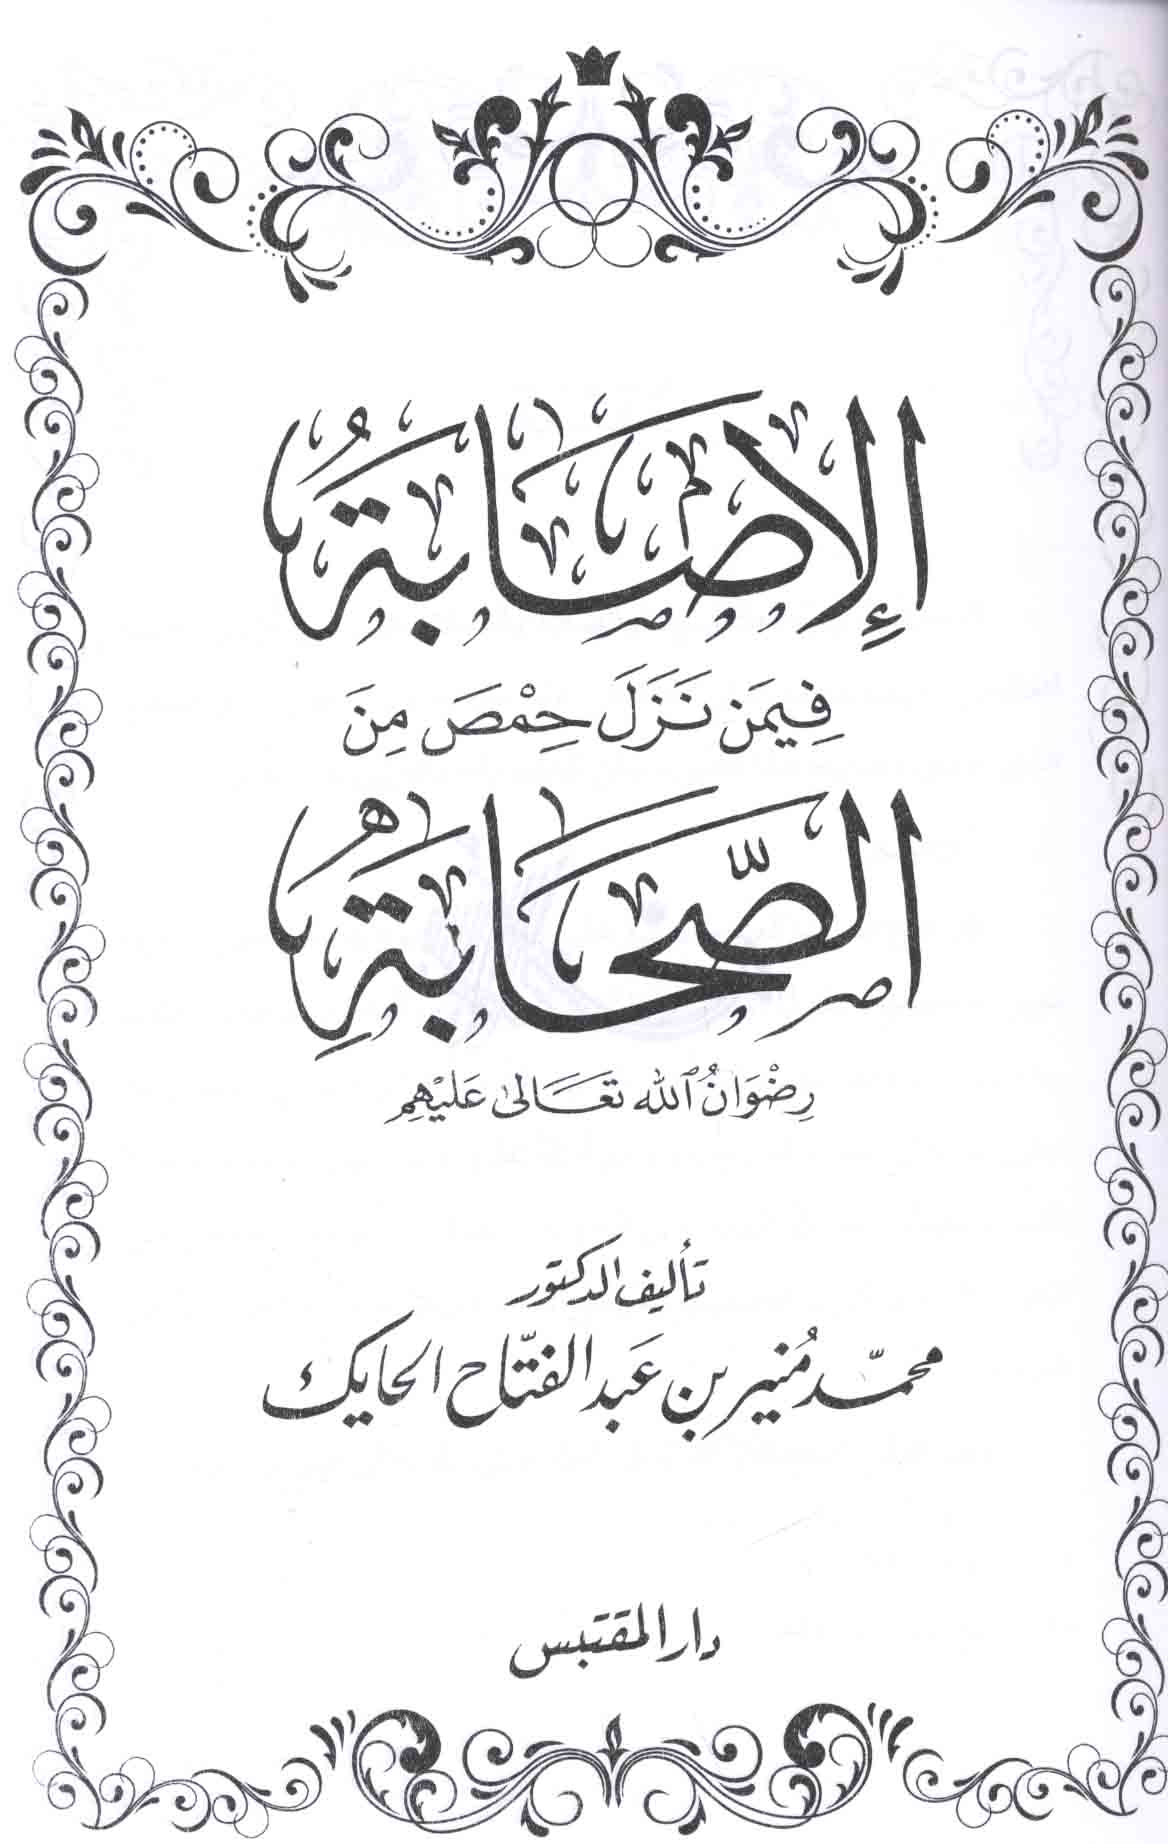 الإِصَابَةُ
فِيمَن نَزَلَ حِمْصَ مِنَ
الصَّحَابَةِ
رِضْوَانُ ٱللّٰه تَعَالىٰ عَلَيْهِم
تأليف الدكتور
محمّد مُنير بن عَبد الفتّاح الحايك
دار المقتبس